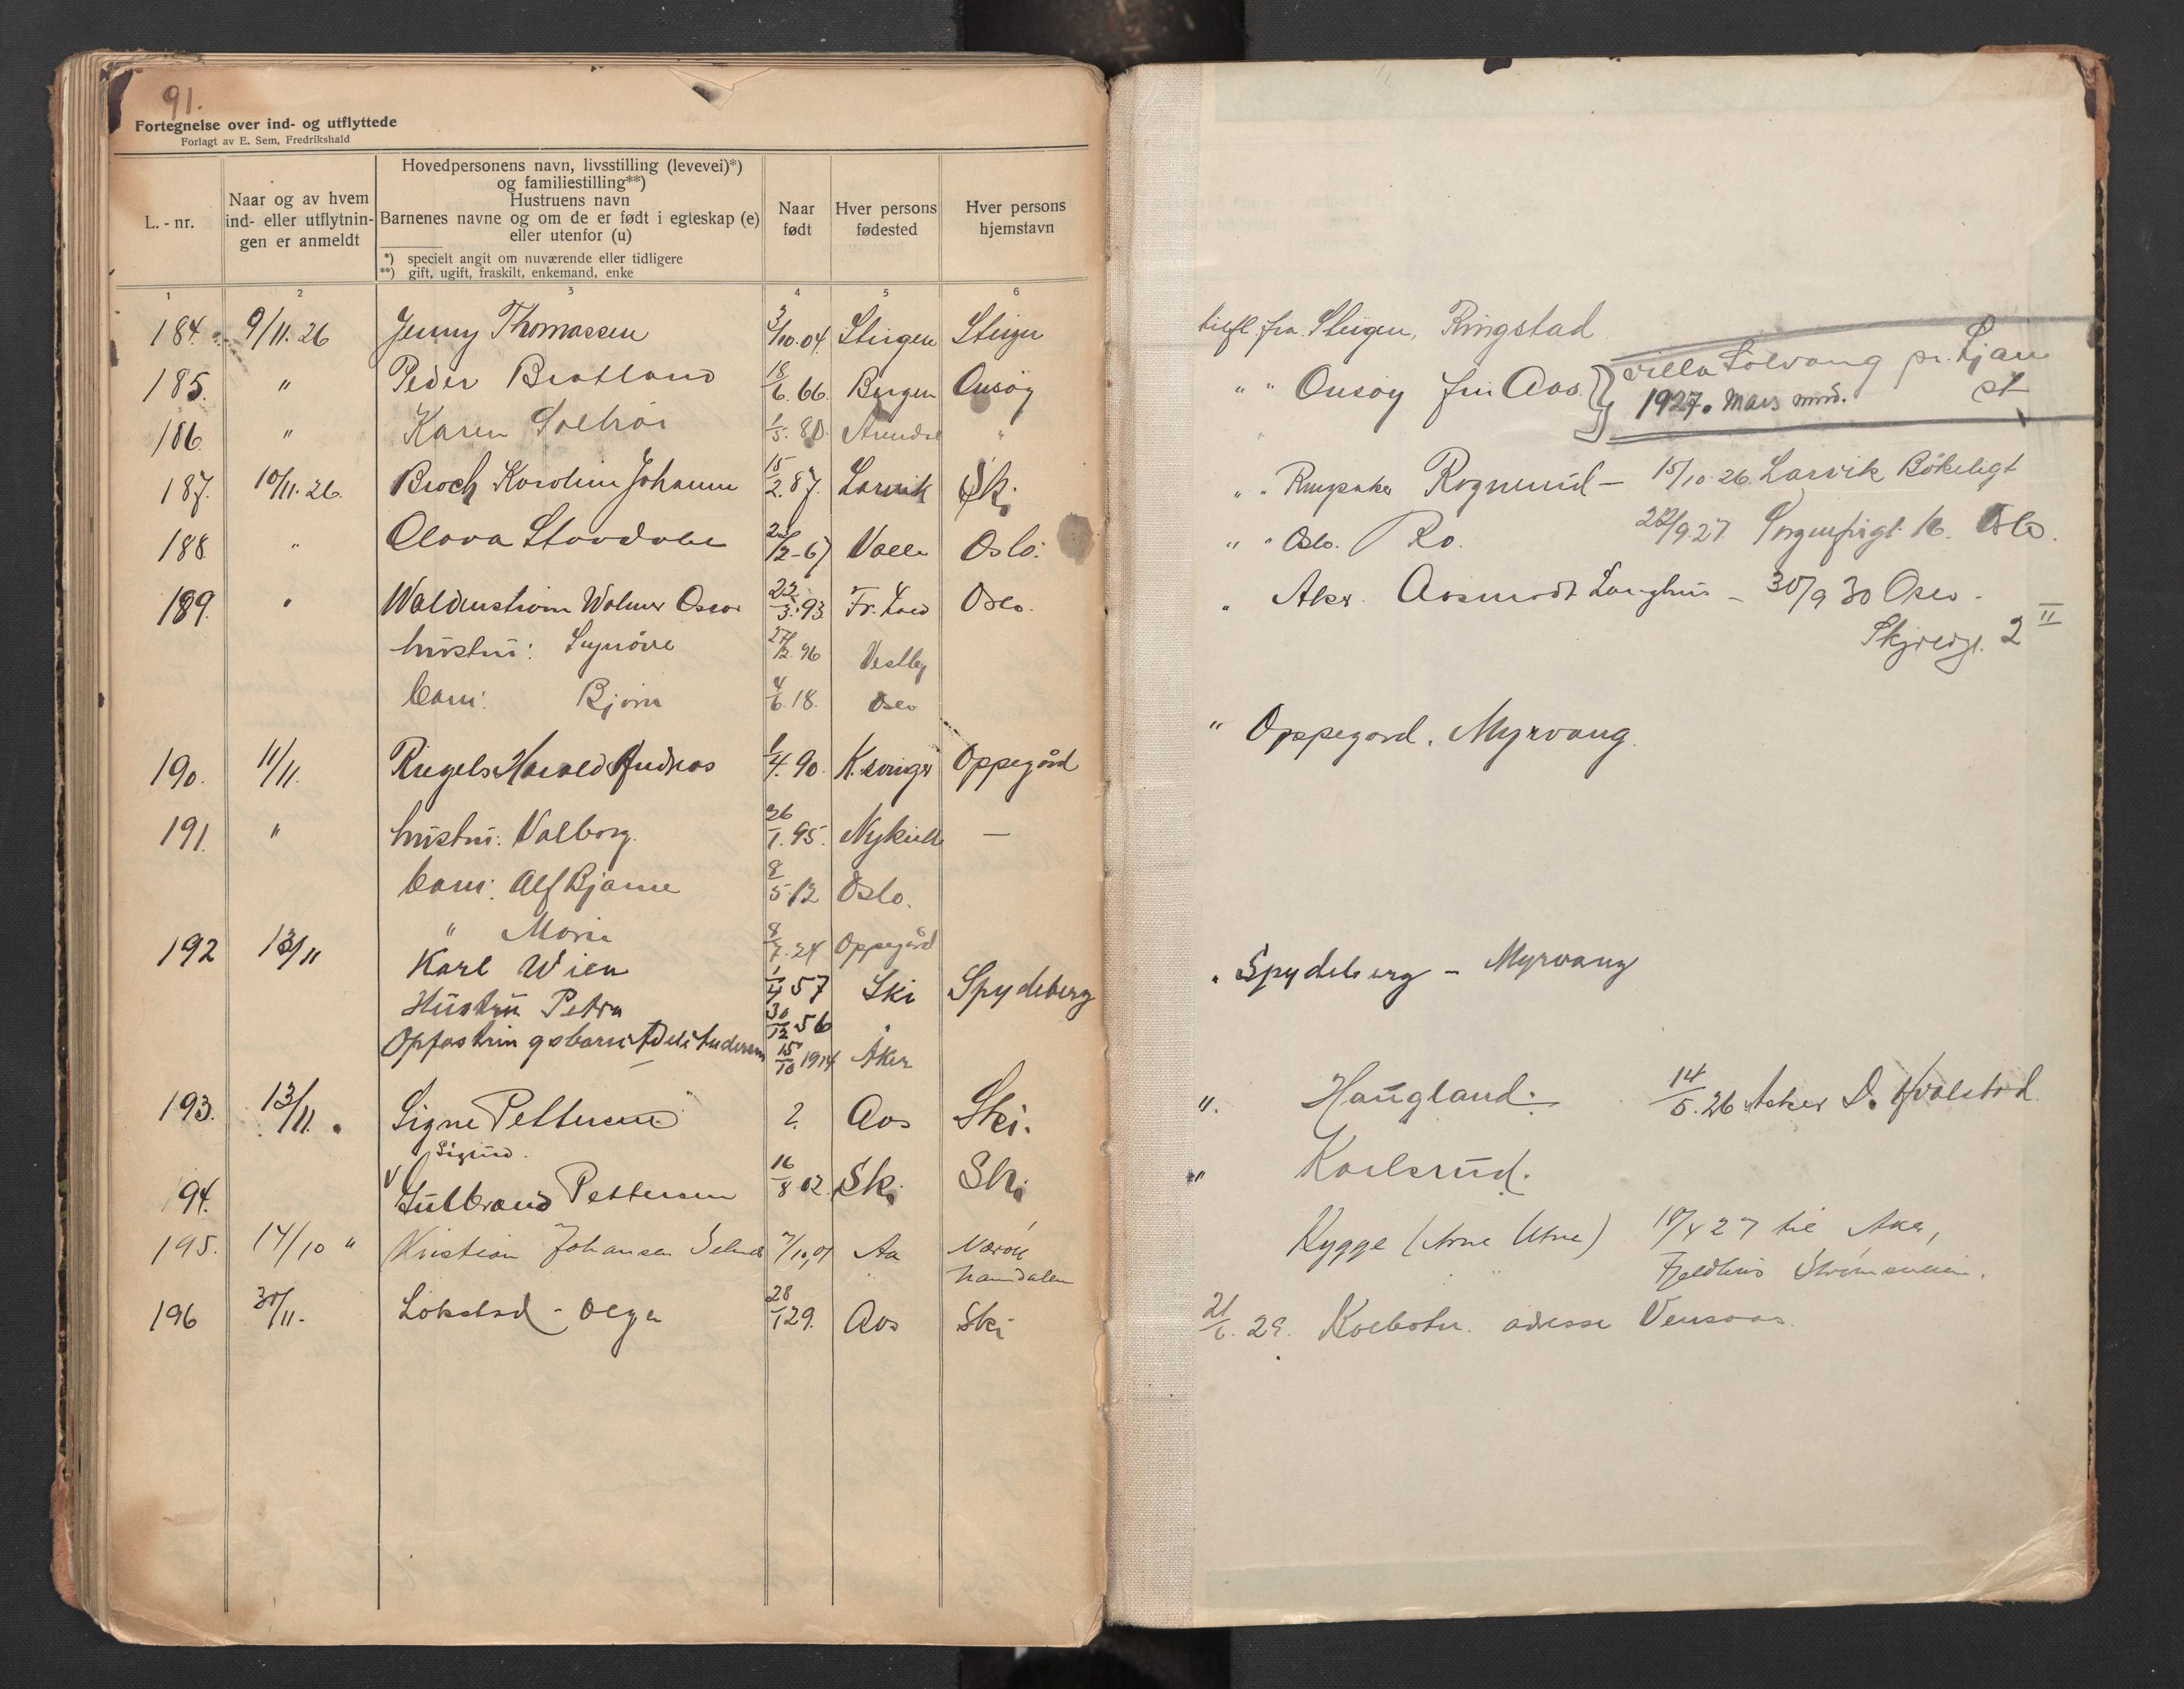 91.
Fortegnelse over ind- og utflyttede
Forlagt av E. Sem, Fredrikshald
L. - nr.
Naar og av hvem
ind- eller utflytnin-
gen er anmeldt
Hovedpersonens navn, livsstilling (levevei)*)
og familiestilling**)
Hustruens navn
Barnenes navne og om de er født i egteskap (e)
eller utenfor (u)
*) specielt angit om nuværende eller tidligere
**) gift, ugift, fraskilt, enkemand, enke
Naar
født
Hver persons
fødested
Hver persons
hjemstavn
1 2 3 4 5 6
184. 9/11. 26 Jenny Thomassen 3/10.04. Steigen Steigen
185. " Peder Bratland 18/6. 66. Bergen Onsøy
186. " Karen 1/5. 80. Arendal "
187. 10/11. 26. Broch Karoline Johanne 15/2. 87. Larvik Ski
188 " Olava 2-67 Valle Oslo.
189. " Waldenstrøm Oscar 22/3. 93 Oslo.
hustru: Synøve 27/12. 96 Vestby
barn: Bjørn 4/6. 18. Oslo
190. 11/11. Ringels Harald Andreas 1/4. 90. K.vinger Oppegård
191. " hustru: Valborg. 26/1. 95. —
barn: Alf Bjarne 5.12 Oslo.
" Marie 8/7. 24 Oppegård
192 13/11 Karl Wien 1/4 57 Ski Spydeberg
Hustru Petra 30/12 56 "
Opfostringsbarn: Andersen 15/10 1914 Aker
193. 13/11. Signe Pettersen ? Aas Ski.
Sigrid.
94. Gulbrand Pettersen 16/8 02. Ski Ski
195. 14/10 " Kristian Johansen 7/10, 01 Aa
Namdalen
196 30/11. Løkstad - Olga 28/1 29. Aas Ski
tilfl. fra. Steigen, Ringstad
" " Onsøy fru Aas. villa Solvang pr. Ljan
st
1927. Mars mnd.
" " Ringsaker Rognerud — 15/10 26. Larvik Bøkeligt
" " Oslo. Ro. /9.27. Sorgenfrigt. 16. Oslo.
" Aker. Aasmodt Langhus — 30/9 30 Oslo.
2 II
" Oppegard. Myrvang.
" Spydeberg — Myrvang
". Haugland. 14/5. 26 Asker D. Hvalstad.
" Karlsrud.
Rygge (Arne Utne) /4 27 til Aker,
Fjeldhus Strømsveien.
21/6. 29. Kolbotn. adresse Vensaas.